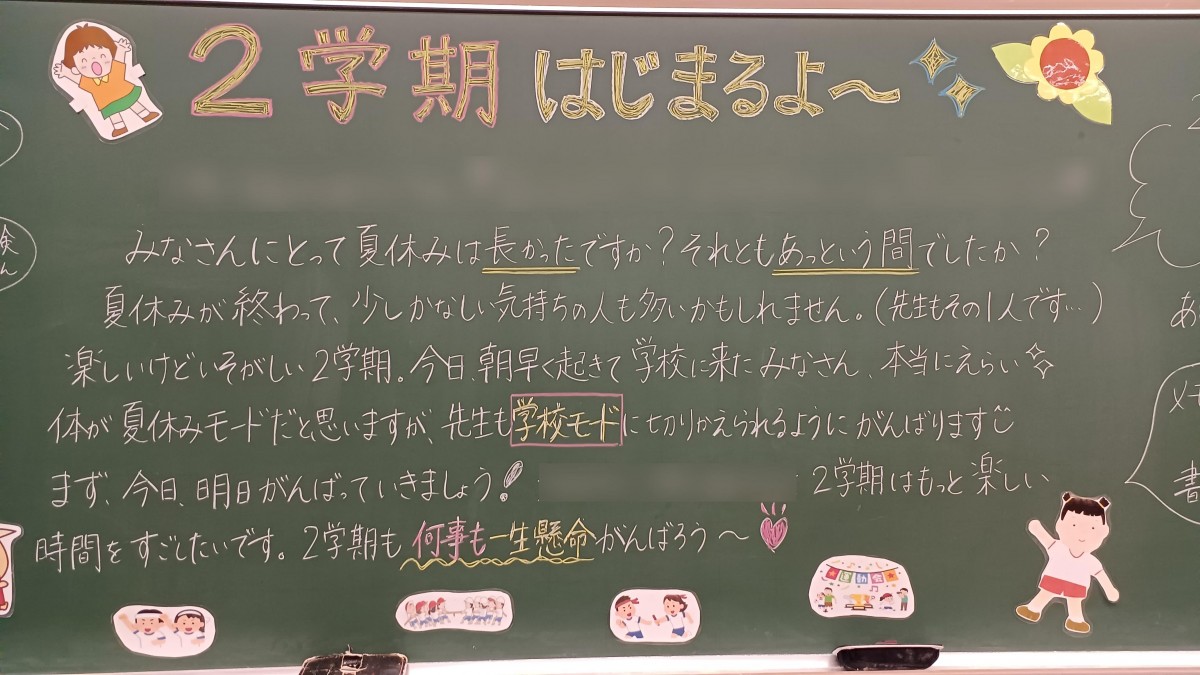 2学期はじまるよ～
みなさんにとって夏休みは長かったですか？それともあっという間でしたか？
夏休みが終わって、少しかなしい気持ちの人も多いかもしれません。(先生もその1人です…)
楽しいけどいそがしい2学期。今日、朝早く起きて学校に来たみなさん、本当にえらい
体が夏休みモードだと思いますが、先生も学校モードに切りかえられるようにがんばります
まず、今日、明日がんばっていきましょう！
2学期はもっと楽しい
時間をすごしたいです。2学期も何事も一生懸命がんばろう～
運動会
あ
書